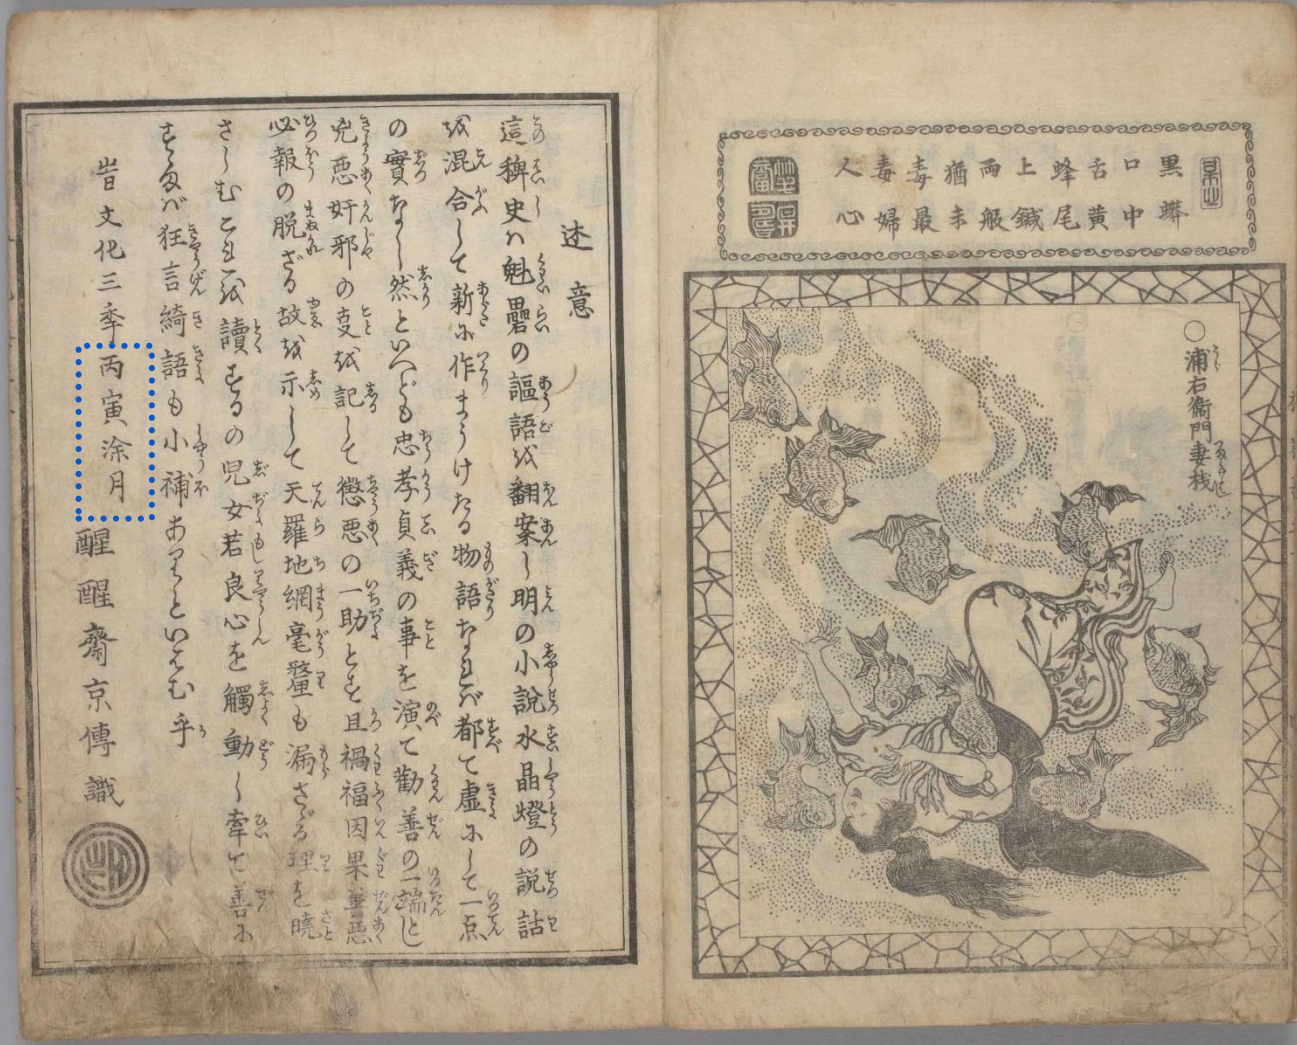 黒蟒
口中
舌黄
蜂尾
上鍼
両般
猶未
毒最
毒婦
人心
○浦右衛門妻桟
述意
這稗史ハ魁礨の謳語を翻案し明の小説水晶燈の説話
を混合して新に作まうけたる物語なれバ都て虚にして一点
の實なし然といへども忠孝貞義の事を演て勧善の一端とし
兇悪奸邪の㕝を記して懲悪の一助とす且禍福因果善悪
必報の脱ざる故を示して天羅地網毫釐も漏さゞる理を曉
さしむこれを讀するの児女若良心を觸動し牽て善に
すゝまバ狂言綺語も小補ありといはむ乎
旹文化三季丙寅涂月 醒醒齋京傳識